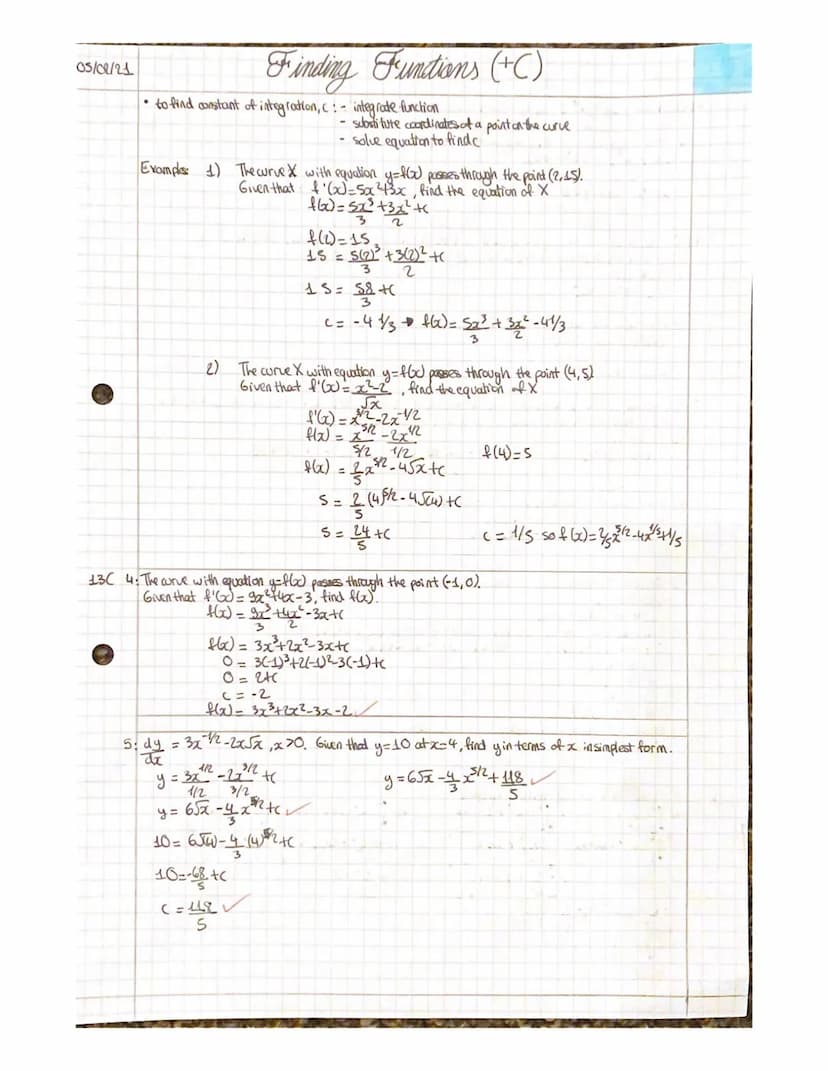 05/02/21
Finding Functions (+C)
• to find constant of integration, c : - integrate function
- substitute coordinates of a point on the curve
- solve equation to find c
Examples 1) The curve X with equation y=f(x) passes through the point (2,15).
Given that f'(x)=5x²+3x, find the equation of X
f(x)= 5x³/3 + 3x²/2 +c
f(2)=15
15 = 5(2)³/3 + 3(2)²/2 +c
15 = 58/3 +c
c= -4 1/3 → f(x)= 5x³/3 + 3x²/2 -4 1/3
2) The curve X with equation y=f(x) passes through the point (4,5)
Given that f'(x)= x²-2/√x, find the equation of X
f'(x)= x^3/2 -2x^-1/2
f(x) = x^5/2/5/2 - 2x^1/2/1/2
f(4)=5
f(x) = 2/5 x^5/2 -4√x +c
5 = 2/5 (4)^5/2 - 4√(4) +c
5 = 24/5 +c
c = 1/5 so f(x)= 2/5x^5/2 -4x^1/5 +1/5
13C 4: The curve with equation y=f(x) passes through the point (-1,0).
Given that f'(x)= 9x²+4x-3, find f(x).
f(x) = 9x³/3 + 4x²/2 -3x+c
f(x) = 3x³+2x²-3x+c
0 = 3(-1)³+2(-1)²-3(-1)+c
0 = 2+c
c = -2
f(x)= 3x³+2x²-3x-2 ✓
5: dy/dx = 3x^-1/2 -2x√x, x>0. Given that y=10 at x=4, find y in terms of x in simplest form.
y = 3x^1/2/1/2 - 2x^3/2/3/2 +c
y=6√x - 4/3 x^5/2 + 118/5 ✓
y= 6√x - 4/3 x^5/2 +c ✓
10= 6√(4) - 4/3 (4)^5/2 +c
10= -68/5 +c
c = 118/5 ✓